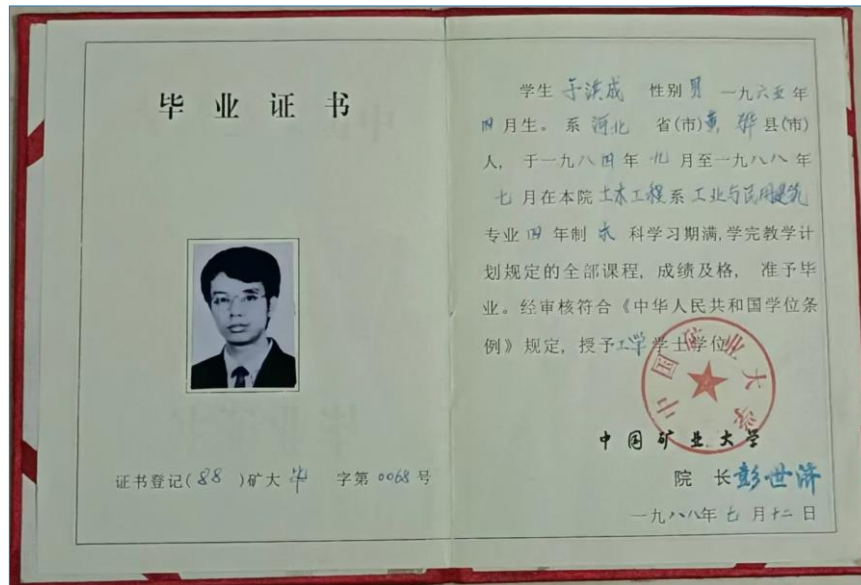 毕业证书
证书登记(88)矿大毕 字第0068号
学生 于洪成 性别 男 一九六五年
四月生。系 河北 省(市)黄骅县(市)
人, 于一九八四年 九 月至一九八八年
七 月在本院 土木工程系 工业与民用建筑
专业 四 年制 本 科学习期满,学完教学计
划规定的全部课程, 成绩及格, 准予毕
业。经审核符合《中华人民共和国学位条
例》规定, 授予工学学士学位。
中国矿业大学
中国矿业大学
院 长 彭世济
一九八八年 七 月十二日